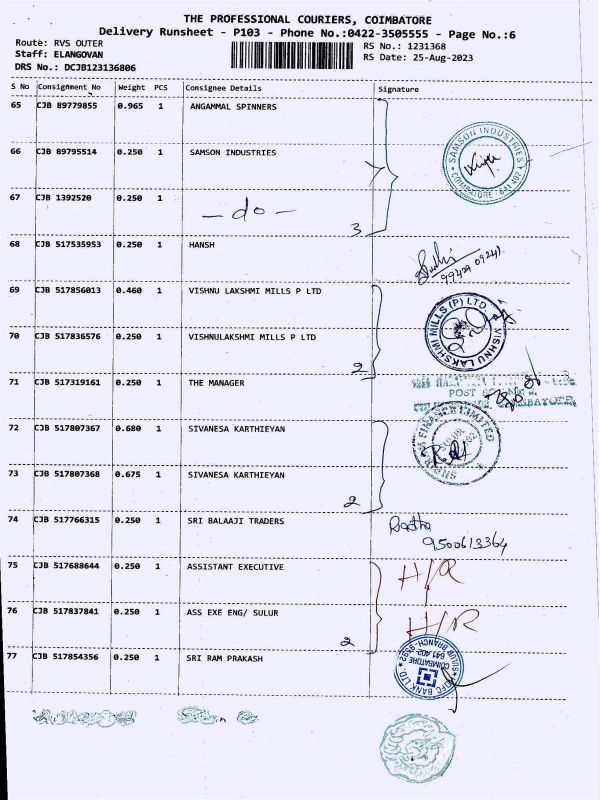 THE PROFESSIONAL COURIERS, COIMBATORE
Delivery Runsheet - P103 - Phone No.:0422-3505555 - Page No.:6
Route: RVS OUTER
Staff: ELANGOVAN
DRS No.: DCJB123136806
RS No.: 1231368
RS Date: 25-Aug-2023
S No Consignment No Weight PCS Consignee Details Signature
65 CJB 89779855 0.965 1 ANGAMMAL SPINNERS
66 CJB 89795514 0.250 1 SAMSON INDUSTRIES
SAMSON INDUSTRIES
COIMBATORE - 641 402
67 CJB 1392520 0.250 1 - do -
3
68 CJB 517535953 0.250 1 HANSH
99429 09241
69 CJB 517856013 0.460 1 VISHNU LAKSHMI MILLS P LTD
VISHNU LAKSHMI MILLS (P) LTD.
70 CJB 517836576 0.250 1 VISHNULAKSHMI MILLS P LTD
2
71 CJB 517319161 0.250 1 THE MANAGER
POST
COIMBATORE
72 CJB 517807367 0.680 1 SIVANESA KARTHIEYAN
FINANCE LIMITED
73 CJB 517807368 0.675 1 SIVANESA KARTHIEYAN
2
74 CJB 517766315 0.250 1 SRI BALAAJI TRADERS
Radha
9500613364
75 CJB 517688644 0.250 1 ASSISTANT EXECUTIVE
H/R
76 CJB 517837841 0.250 1 ASS EXE ENG/ SULUR
H/R
2
77 CJB 517854356 0.250 1 SRI RAM PRAKASH
HDFC BANK LTD.
SULUR BRANCH-9392
COIMBATORE
641 402